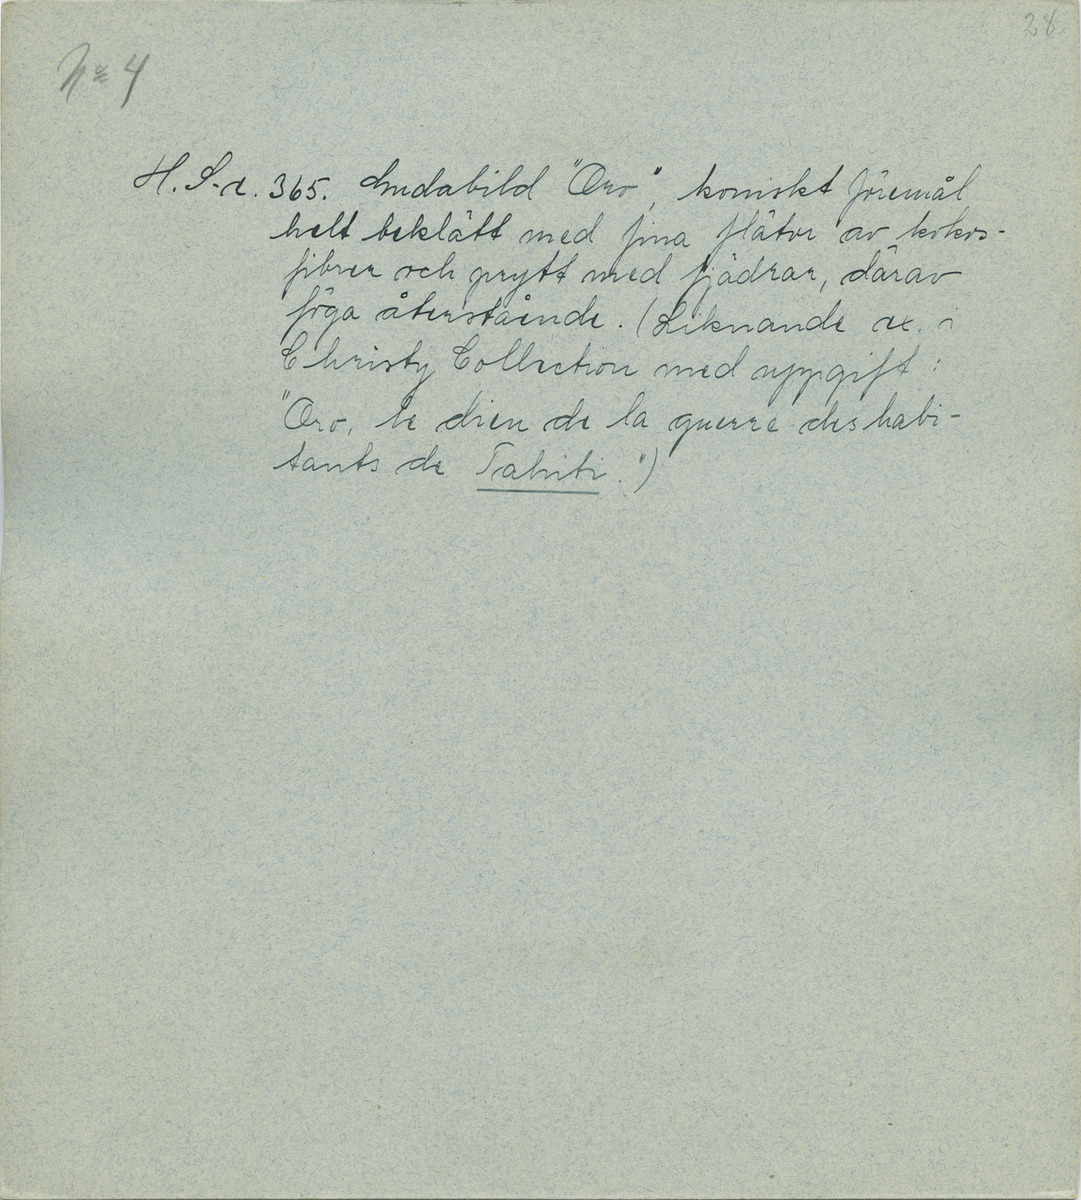 28
No 4
H. S. r. 365. Gudabild "Oro", koniskt föremål
helt beklätt med fina flätor av kokos-
fibrer och prytt med fjädrar, därav
föga återstående. (Liknande ex. i
Christy Collection med uppgift:
"Oro, le dieu de la guerre des habi-
tants de Tahiti.")